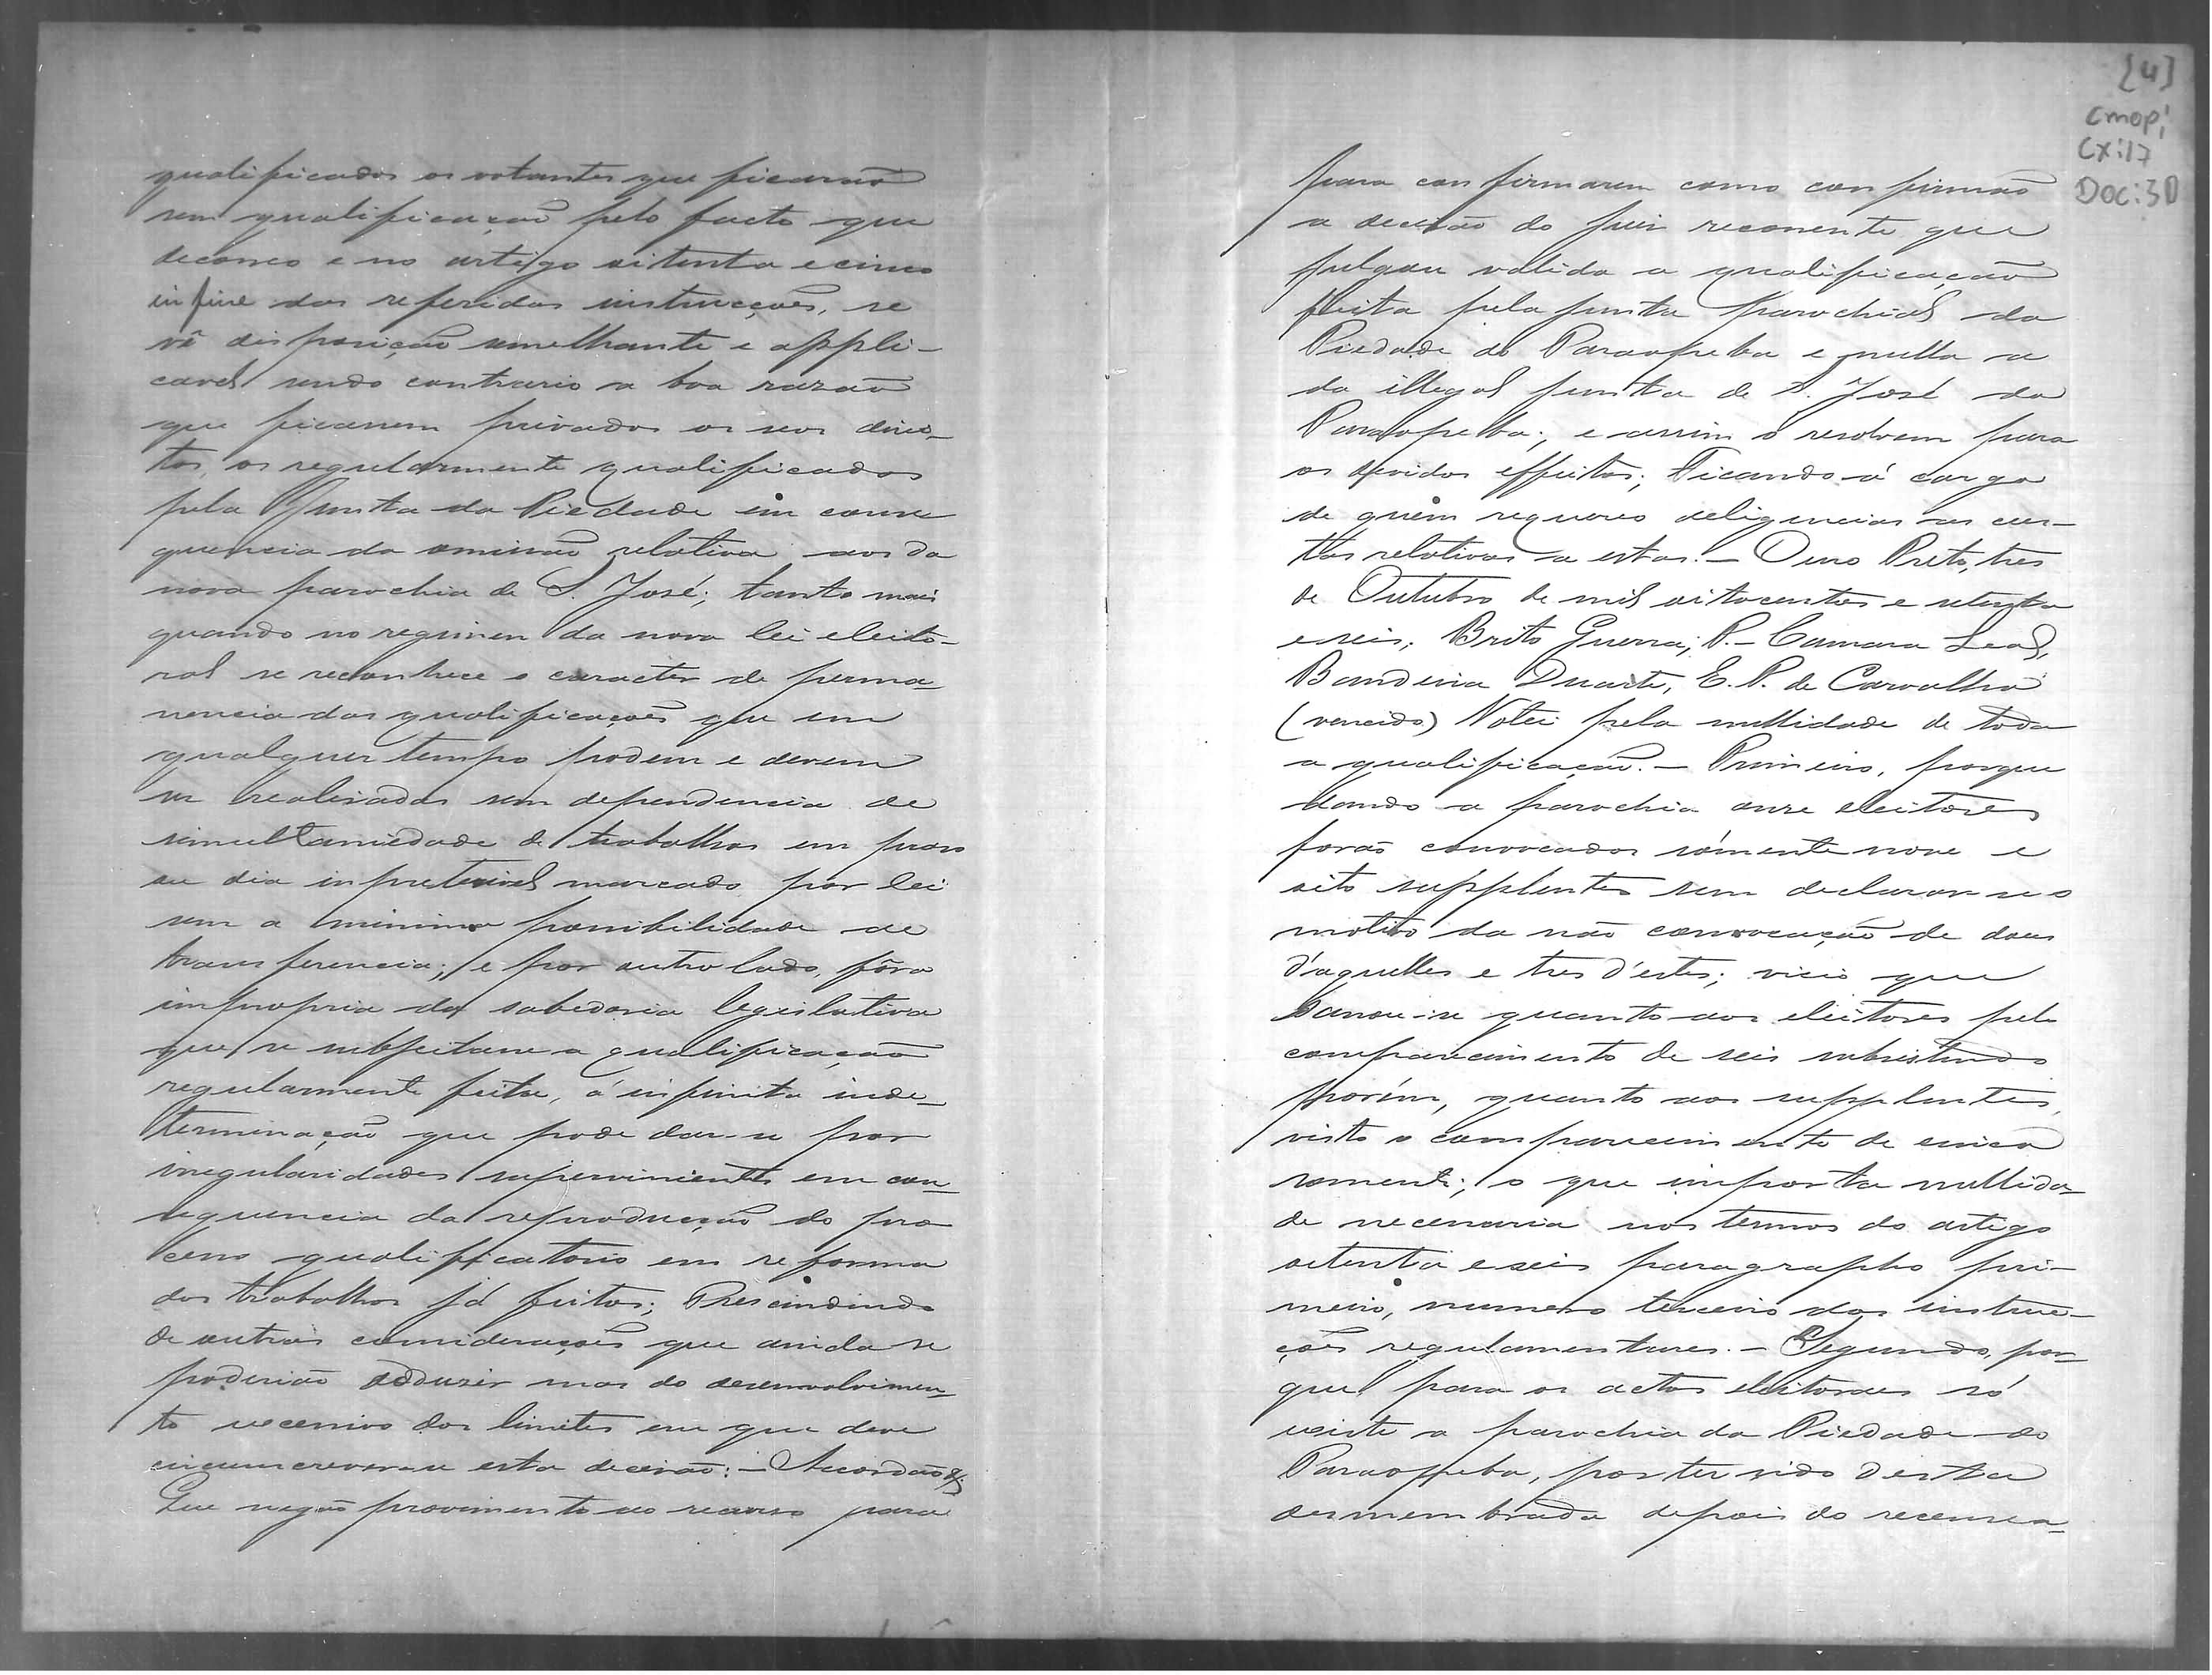 qualificados os votantes que ficarão
sem qualificação pelo facto que
decorreo e no artigo oitenta e cinco
in fine das referidas instrucções, se
vê disposição semelhante e appli-
cavel sendo contrario a boa razão
que ficarem privados os seos direi-
tos, os regularmente qualificados
pela Junta da Piedade em conse
quencia da omissão relativa aos da
nova parochia de S. José; tanto mais
quando no regimen da nova lei eleito-
ral se reconhece o caracter de perma-
nencia das qualificações que em
qualquer tempo podem e devem
ser realisadas sem dependencia de
simultaniedade de trabalhos em praso
ou dia impreterivel marcado por lei
sem a minima possibilidade de
transferencia; e por outro lado, fôra
impropria da sabedoria legislativa
que se subjeitasse a qualificação
regularmente feita, á infinita inde-
terminação que pode dar-se por
irregularidades supervinientes em con-
sequencia da reproducção do pro
cesso qualificatorio em reforma
dos trabalhos já feitos; Prescindindo
de outras considerações que ainda se
poderião adduzir mas do desenvolvimen-
to excessivo dos limites em que deve
circunscrever-se esta decisão: - Accordão &
Que negão provimento ao recurso para
[4]
CMOP;
CX:17
DOC:30
para confirmarem como confirmão
a decisão do juiz recorrente que
julgou valida a qualificação
feita pela junta parochial da
Piedade do Paraopeba e nulla a
da illegal junta de S. José do
Paraopeba; e assim o resolvem para
os devidos effeitos; Ficando á cargo
de quem requereo deligencias as cus-
tas relativas a estas. - Ouro Preto, tres
de Outubro de mil oitocentos e setenta
e seis; Brito Guerra; P. - Camara Leal,
Bandeira Duarte, E. P. de Carvalho
(vencido) Votei pela nullidade de toda
a qualificação. - Primeiro, porque
dando a parochia onze eleitores
forão convocados sómente nove e
oito supplentes sem declarar-se o
motivo da não convocação de dous
d'aquelles e tres d'estes; vicio que
sanou-se quanto aos eleitores pelo
comparecimento de seis subsistindo
porém, quanto aos supplentes,
visto o comparecimento de cinco
somente; o que importa nullida-
de necessaria nos termos do artigo
setenta e seis paragrapho pri-
meiro, numero terceiro das instruc-
ções regulamentares. - Segundo, por-
que para os actos eleitoraes só
existe a parochia da Piedade do
Paraopeba, por ter sido desta
desmembrada depois do recensea-